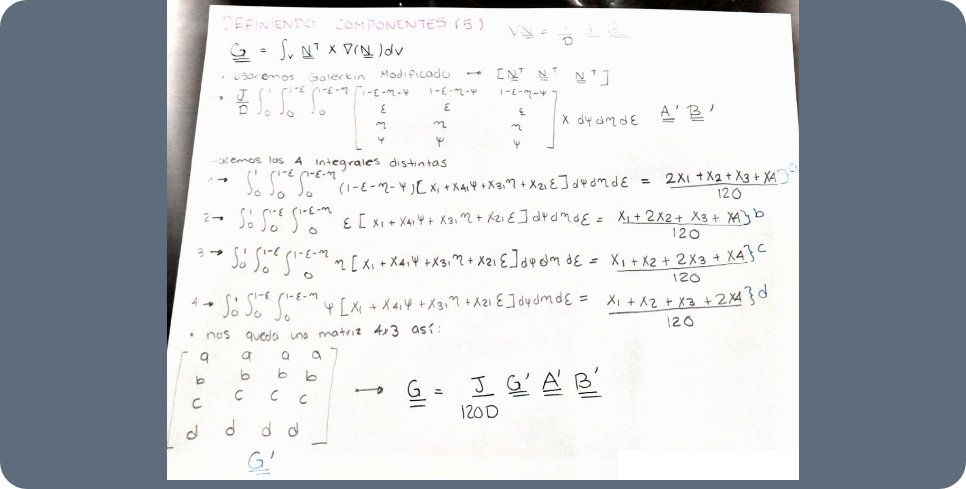 DEFINIENDO COMPONENTES (5)
∇N = 1/D
G = ∫v Nᵀ X ∇(N) dv
• usaremos Galerkin Modificado → [Nᵀ Nᵀ Nᵀ]
→ J/D ∫₀¹ ∫₀^(1-ε) ∫₀^(1-ε-η) [1-ε-η-ψ 1-ε-η-ψ 1-ε-η-ψ
ε ε ε
η η η
ψ ψ ψ] X dψ dη dε A' B'
hacemos las 4 integrales distintas
1 → ∫₀¹ ∫₀^(1-ε) ∫₀^(1-ε-η) (1-ε-η-ψ)[X1 + X41ψ + X31η + X21ε] dψ dη dε = 2X1 + X2 + X3 + X4 / 120 } a
2 → ∫₀¹ ∫₀^(1-ε) ∫₀^(1-ε-η) ε [X1 + X41ψ + X31η + X21ε] dψ dη dε = X1 + 2X2 + X3 + X4 / 120 } b
3 → ∫₀¹ ∫₀^(1-ε) ∫₀^(1-ε-η) η [X1 + X41ψ + X31η + X21ε] dψ dη dε = X1 + X2 + 2X3 + X4 / 120 } c
4 → ∫₀¹ ∫₀^(1-ε) ∫₀^(1-ε-η) ψ [X1 + X41ψ + X31η + X21ε] dψ dη dε = X1 + X2 + X3 + 2X4 / 120 } d
• nos queda una matriz 4x3 así:
[a a a a
b b b b
c c c c
d d d d]
→ G = J/120D G' A' B'
G'